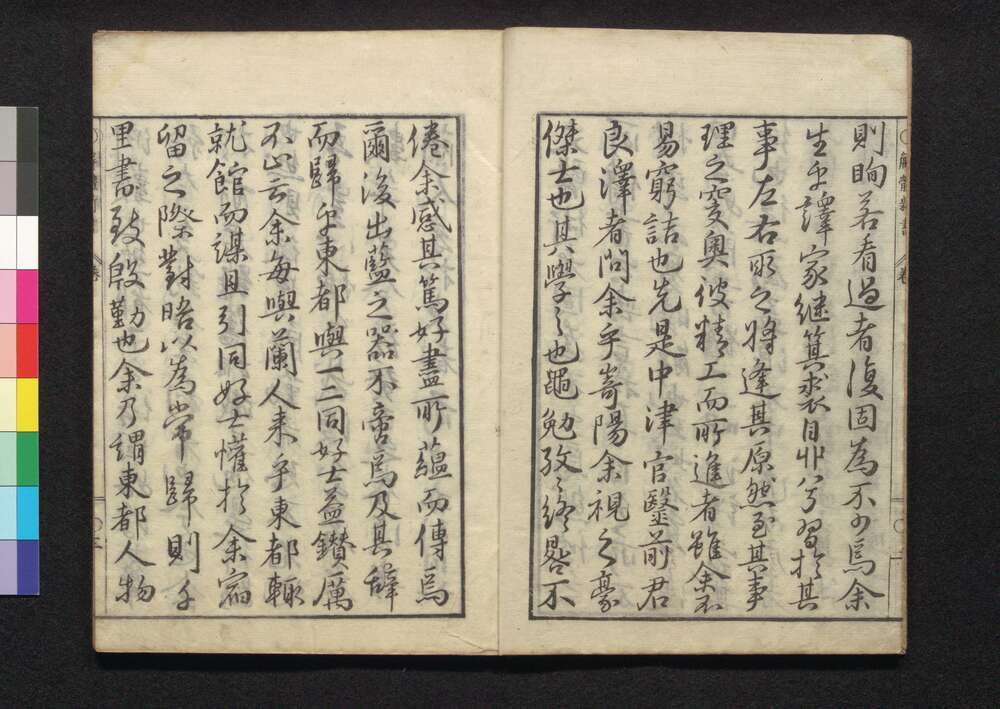 則眴若看過者復固為不少焉余
生乎譯家継箕裘自丱兮習於其
事左右取之將逢其原然至其事
理之窔奥彼精工而所進者雖余不
易窮詰也先是中津官毉前君
良澤者問余乎嵜陽余視之豪
傑士也其學之也黽勉孜〻終晷不
倦余感其篤好盡所蘊而傳焉
爾後出藍之器不啻焉及其辭
而歸乎東都與一二同好士益鑚厲
不止云余每與蘭人来乎東都輙
就館而謀且引同好士懽於余宿
留之際對晤以為常歸則千
里書致殷勤也余乃謂東都人物